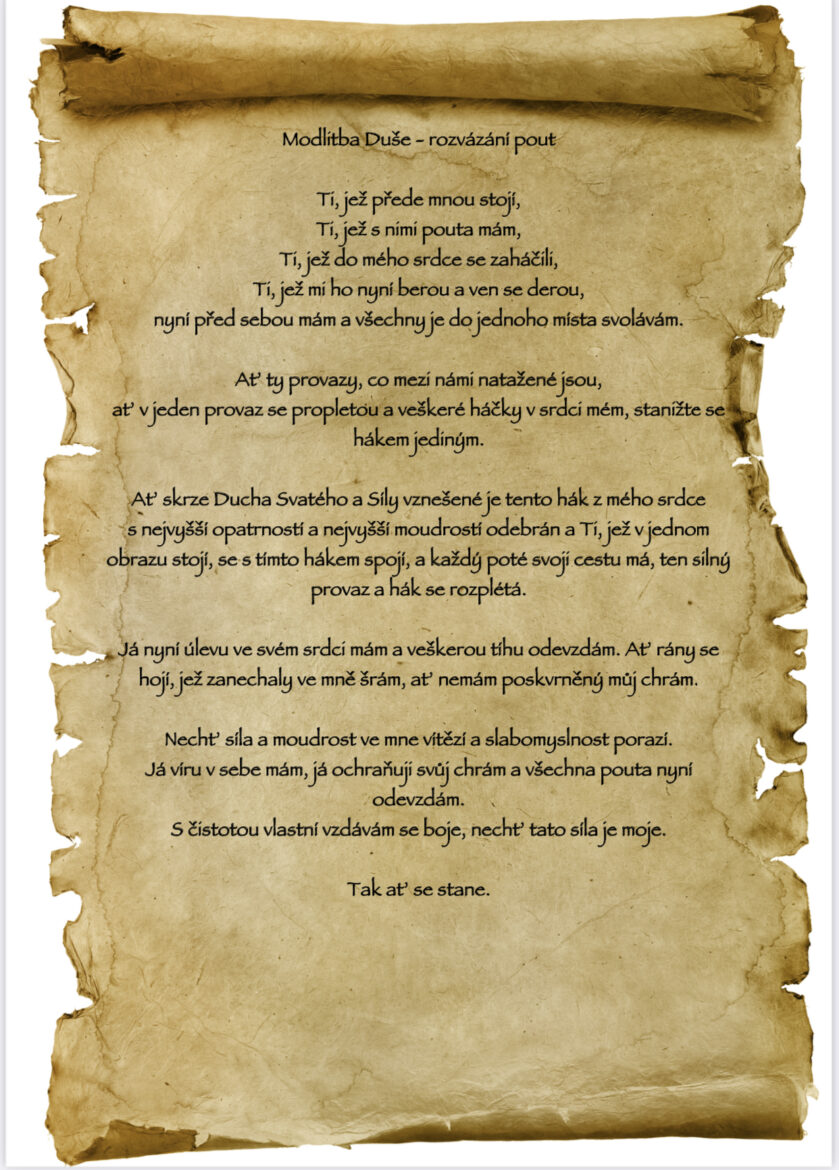 Modlitba Duše - rozvázání pout
Ti, jež přede mnou stojí,
Ti, jež s nimi pouta mám,
Ti, jež do mého srdce se zaháčili,
Ti, jež mi ho nyní berou a ven se derou,
nyní před sebou mám a všechny je do jednoho místa svolávám.
Ať ty provazy, co mezi námi natažené jsou,
ať v jeden provaz se propletou a veškeré háčky v srdci mém, stanižte se
hákem jediným.
Ať skrze Ducha Svatého a Síly vznešené je tento hák z mého srdce
s nejvyšší opatrností a nejvyšší moudrostí odebrán a Ti, jež v jednom
obrazu stojí, se s tímto hákem spojí, a každý poté svoji cestu má, ten silný
provaz a hák se rozplétá.
Já nyní úlevu ve svém srdci mám a veškerou tíhu odevzdám. Ať rány se
hojí, jež zanechaly ve mně šrám, ať nemám poskvrněný můj chrám.
Nechť síla a moudrost ve mne vítězí a slabomyslnost porazí.
Já víru v sebe mám, já ochraňuji svůj chrám a všechna pouta nyní
odevzdám.
S čistotou vlastní vzdávám se boje, nechť tato síla je moje.
Tak ať se stane.